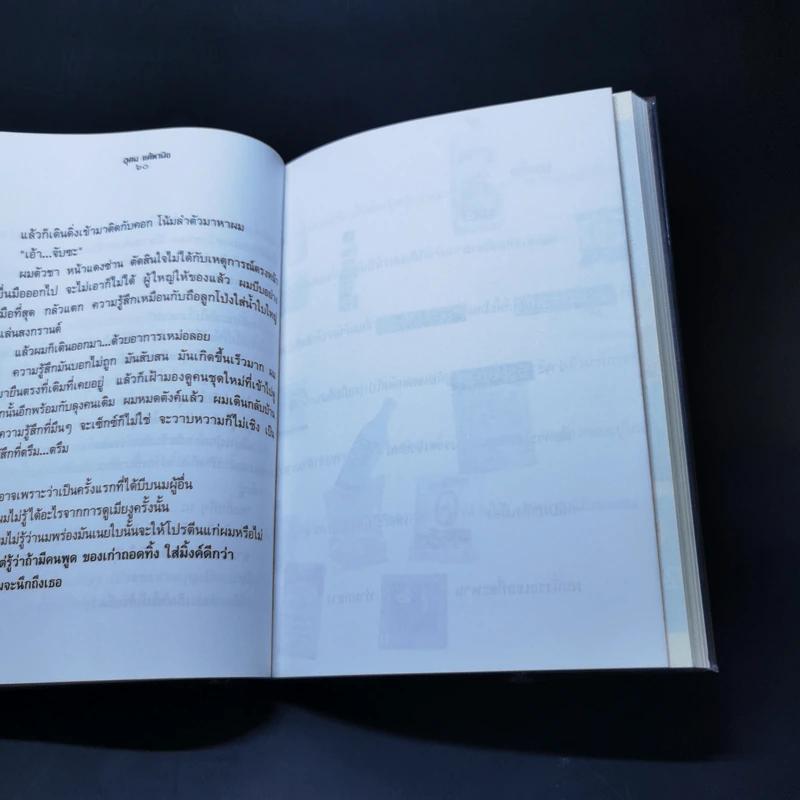 อุดม แต้พานิช
๖๐
แล้วก็เดินดิ่งเข้ามาติดกับคอก โน้มลำตัวมาหาผม
"เอ้า...จับซะ"
ผมตัวชา หน้าแดงซ่าน ตัดสินใจไม่ได้กับเหตุการณ์ตรงหน้า
ยื่นมือออกไป จะไม่เอาก็ไม่ได้ ผู้ใหญ่ให้ของแล้ว ผมบีบอย่าง
มือที่สุด กลัวแตก ความรู้สึกเหมือนกับถือลูกโป่งใส่น้ำใบใหญ่
เล่นสงกรานต์
แล้วผมก็เดินออกมา...ด้วยอาการเหม่อลอย
ความรู้สึกมันบอกไม่ถูก มันสับสน มันเกิดขึ้นเร็วมาก ผม
มายืนตรงที่เดิมที่เคยอยู่ แล้วก็เฝ้ามองดูคนชุดใหม่ที่เข้าไป
กนั้นอีกพร้อมกับลุงคนเดิม ผมหมดตังค์แล้ว ผมเดินกลับบ้าน
ความรู้สึกที่มึนๆ จะเซ็กซ์ก็ไม่ใช่ จะวาบหวามก็ไม่เชิง เป็น
สึกที่ตรึม...ตรึม
อาจเพราะว่าเป็นครั้งแรกที่ได้บีบนมผู้อื่น
มไม่รู้ได้อะไรจากการดูเมียงูครั้งนั้น
มไม่รู้ว่านมพร่องมันเนยใบนั้นจะให้โปรตีนแก่ผมหรือไม่
ต่รู้ว่าถ้ามีคนพูด ของเก่าถอดทิ้ง ใส่มิ้งค์ดีกว่า
มจะนึกถึงเธอ